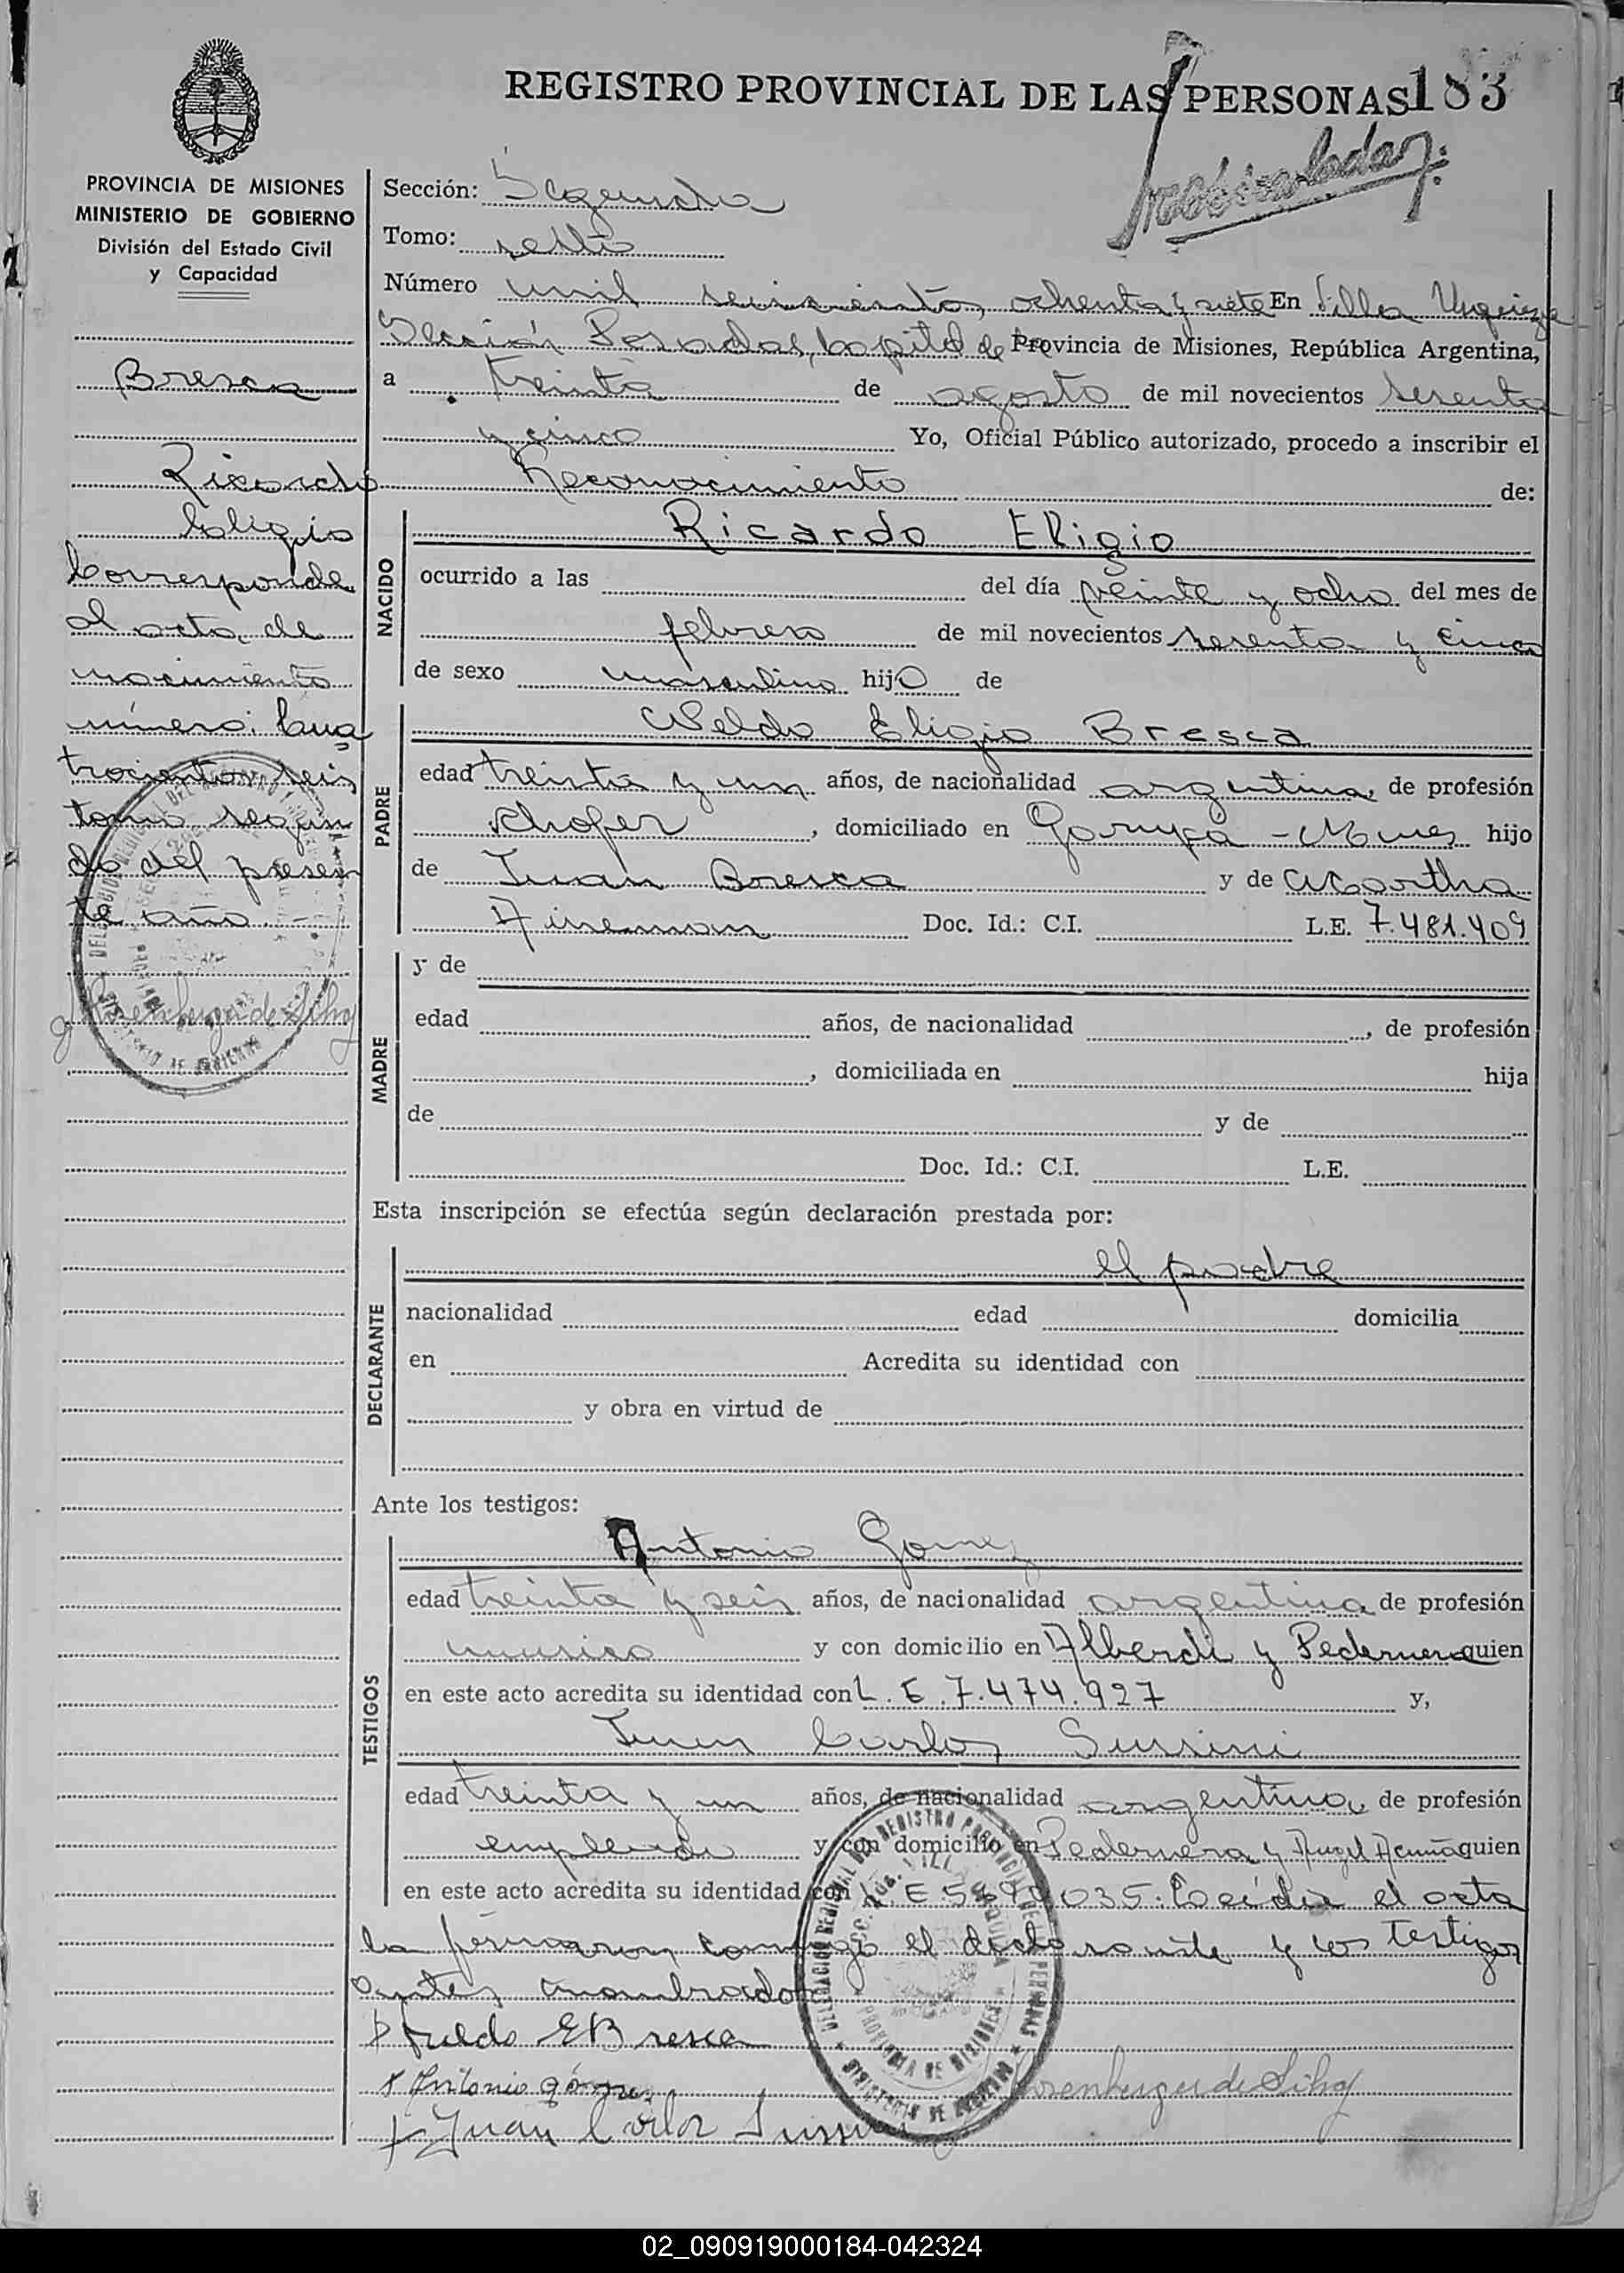 REGISTRO PROVINCIAL DE LAS PERSONAS 183
PROVINCIA DE MISIONES
MINISTERIO DE GOBIERNO
División del Estado Civil
y Capacidad
Bresca
Ricardo
Eligio
Corresponde
al acta de
nacimiento
número: Cua
trocientos seis
tomo segun
do del presen
te año.
Sección: Segunda
Tomo: sexto
Número mil seiscientos ochenta y siete En Villa Urquiza
Sección Posadas, Capital de Provincia de Misiones, República Argentina,
a treinta de agosto de mil novecientos sesenta
y cinco Yo, Oficial Público autorizado, procedo a inscribir el
Reconocimiento de:
NACIDO
Ricardo Eligio
ocurrido a las del día veinte y ocho del mes de
febrero de mil novecientos sesenta y cinco
de sexo masculino hijo de
PADRE
Eligio Bresca
edad treinta y un años, de nacionalidad argentina, de profesión
chofer, domiciliado en Garupá - Mnes hijo
de Juan Bresca y de Martha
Doc. Id.: C.I. L.E. 7.481.409
MADRE
y de
edad años, de nacionalidad , de profesión
, domiciliada en hija
de y de
Doc. Id.: C.I. L.E.
Esta inscripción se efectúa según declaración prestada por:
DECLARANTE
el padre
nacionalidad edad domicilia
en Acredita su identidad con
y obra en virtud de
Ante los testigos:
TESTIGOS
Antonio Gomez
edad treinta y seis años, de nacionalidad argentina de profesión
musico y con domicilio en Alberdi y Pedernera quien
en este acto acredita su identidad con L.E. 7.474.927 y,
Juan Carlos
edad treinta y un años, de nacionalidad argentina, de profesión
empleado y con domicilio en Pedernera y Angel Acuña quien
en este acto acredita su identidad con L.E. Leída el acta
la firmaron conmigo el declarante y los testigos
antes nombrados
E Bresca
Antonio Gómez
Juan Carlos
02_090919000184-042324